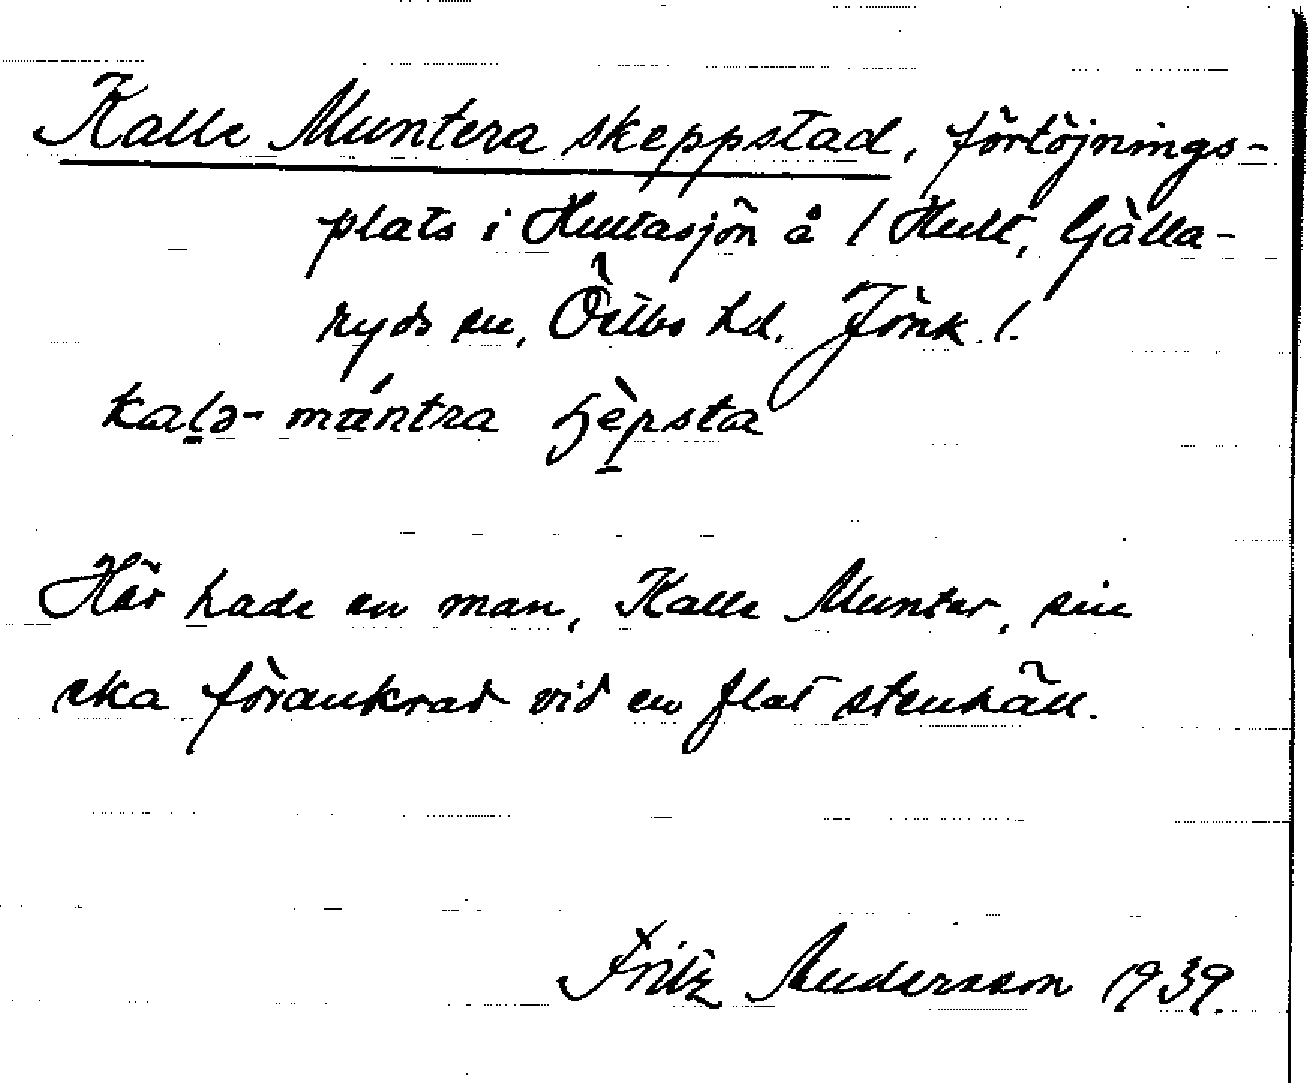 Kalle Muntera skeppstad, förtöjnings-
plats i Hultasjön å 1 Hult, Gälla-
ryds sn, Östbo hd. Jönk. l.
kalə- mùntra ʃɛ̀psta
Här hade en man, Kalle Munter, sin
eka förankrad vid en flat stenhäll.
Fritz Andersson 1939.